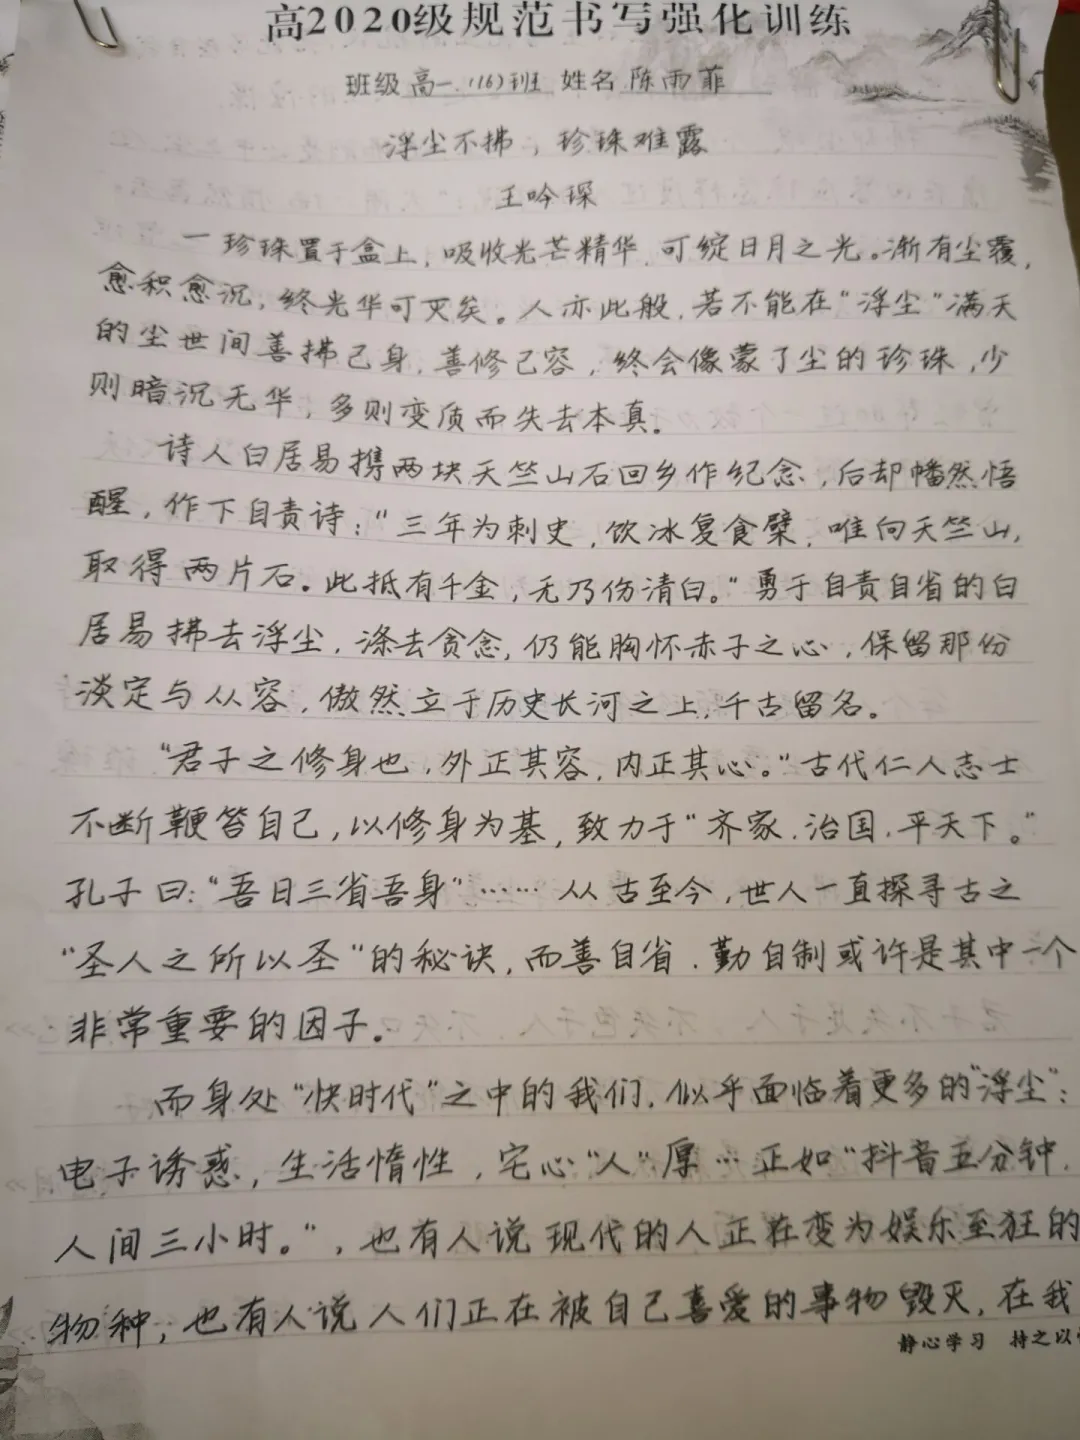 高2020级规范书写强化训练
班级 高一.(16)班 姓名 陈雨菲
浮尘不拂，珍珠难露
王吟琛
一珍珠置于盒上，吸收光芒精华，可绽日月之光。渐有尘覆，
愈积愈沉，终光华可灭矣。人亦此般，若不能在“浮尘”满天
的尘世间善拂己身，善修己容，终会像蒙了尘的珍珠，少
则暗沉无华，多则变质而失去本真。
诗人白居易携两块天竺山石回乡作纪念，后却幡然悟
醒，作下自责诗：“三年为刺史，饮冰复食檗，唯向天竺山，
取得两片石。此抵有千金，无乃伤清白。”勇于自责自省的白
居易拂去浮尘，涤去贪念，仍能胸怀赤子之心，保留那份
淡定与从容，傲然立于历史长河之上，千古留名。
“君子之修身也，外正其容，内正其心。”古代仁人志士
不断鞭笞自己，以修身为基，致力于“齐家.治国.平天下。”
孔子曰：“吾日三省吾身”…… 从古至今，世人一直探寻古之
“圣人之所以圣”的秘诀，而善自省．勤自制或许是其中一个
非常重要的因子。
而身处“快时代”之中的我们，似乎面临着更多的“浮尘”：
电子诱惑，生活惰性，宅心“人”厚…正如“抖音五分钟，
人间三小时。”，也有人说现代的人正在变为娱乐至狂的
物种，也有人说人们正在被自己喜爱的事物毁灭，在我
静心学习 持之以